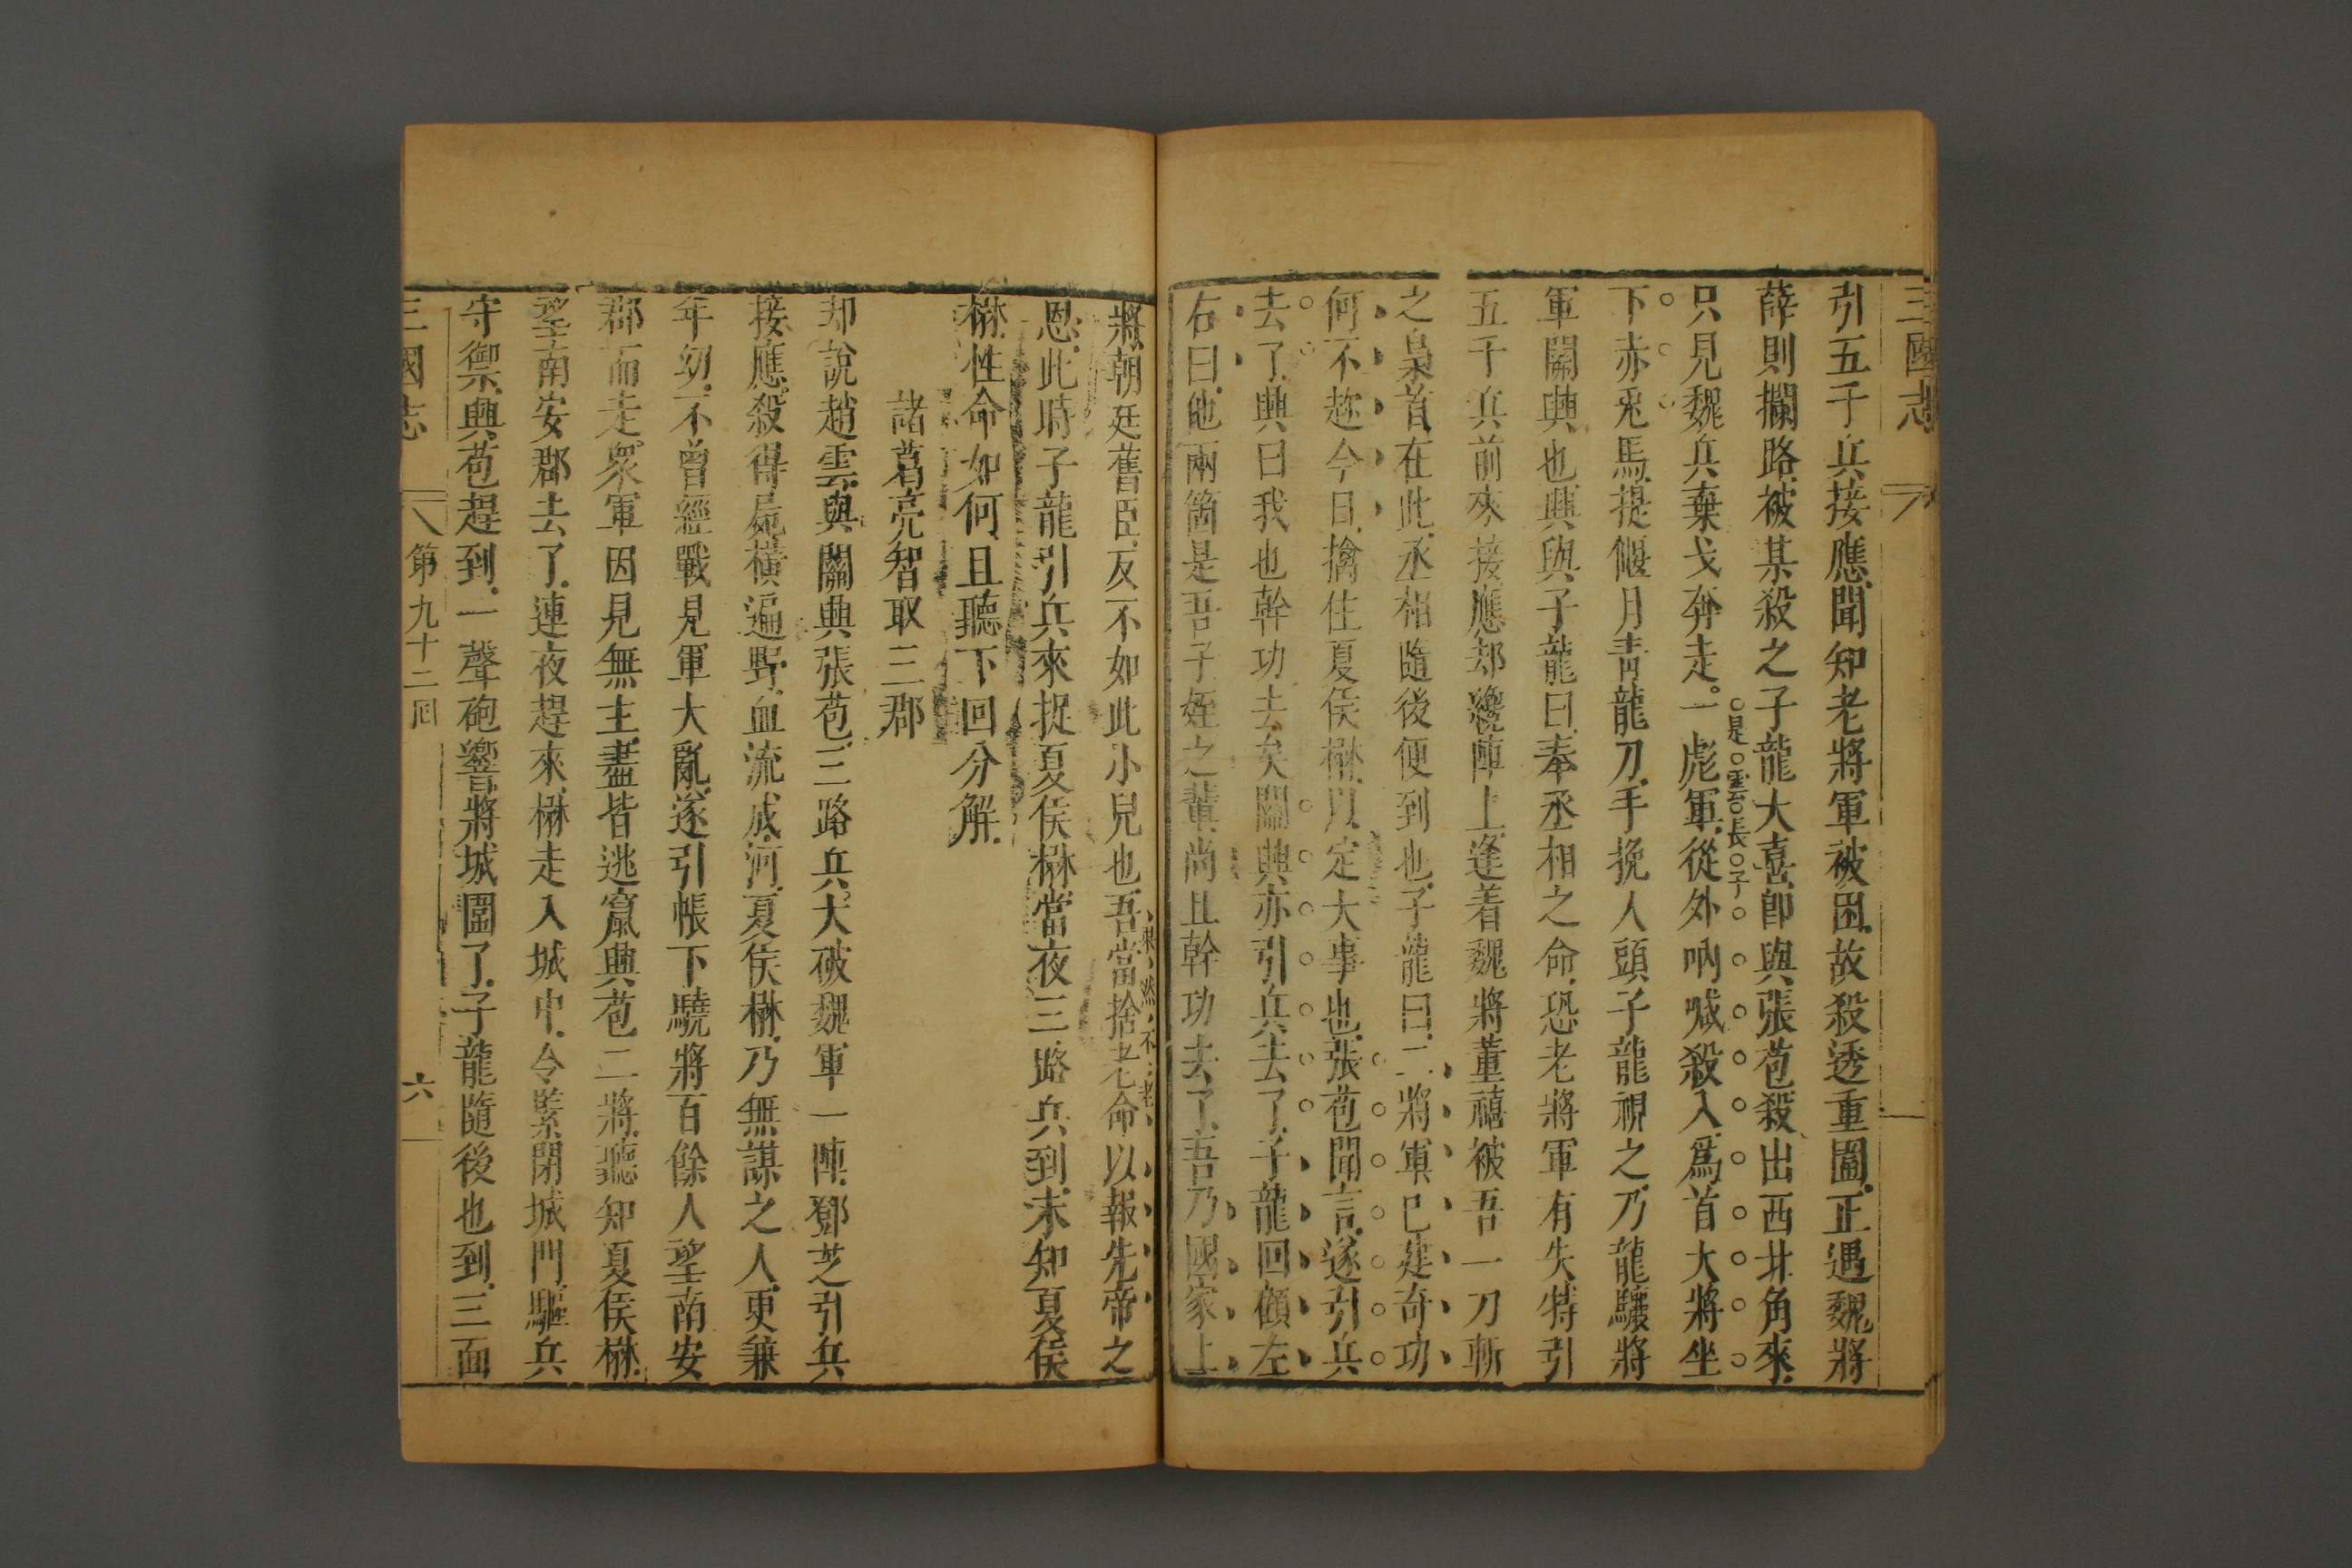 三國志
引五千兵接應聞知老將軍被困故殺透重圍正遇魏將
薛則攔路被某殺之子龍大喜卽與張苞殺出西北角來
是雲長子
只見魏兵棄戈奔走一彪軍從外吶喊殺入爲首大將坐
下赤兎馬提偃月青龍刀手挽人頭子龍視之乃龍驤將
軍關興也興與子龍曰奉丞相之命恐老將軍有失特引
五千兵前來接應却纔陣上逢着魏將董禧被吾一刀斬
之梟首在此丞相隨後便到也子龍曰二將軍已建奇功
何不趂今日擒住夏侯楙以定大事也張苞聞言遂引兵
去了興曰我也幹功去矣關興亦引兵去了子龍回顧左
右曰他兩箇是吾子姪之輩尚且幹功去了吾乃國家上
果然不老
將朝廷舊臣反不如此小兒也吾當捨老命以報先帝之
恩此時子龍引兵來捉夏侯楙當夜三路兵到未知夏侯
楙性命如何且聽下回分解
諸葛亮智取三郡
却說趙雲與關興張苞三路兵大破魏軍一陣鄧芝引兵
接應殺得屍橫遍野血流成河夏侯楙乃無謀之人更兼
年幼不曾經戰見軍大亂遂引帳下驍將百餘人望南安
郡而走衆軍因見無主盡皆逃竄興苞二將聽知夏侯楙
望南安郡去了連夜趕來楙走入城中令緊閉城門驅兵
守禦興苞趕到一聲砲響將城圍了子龍隨後也到三面
三國志 第九十二回 六